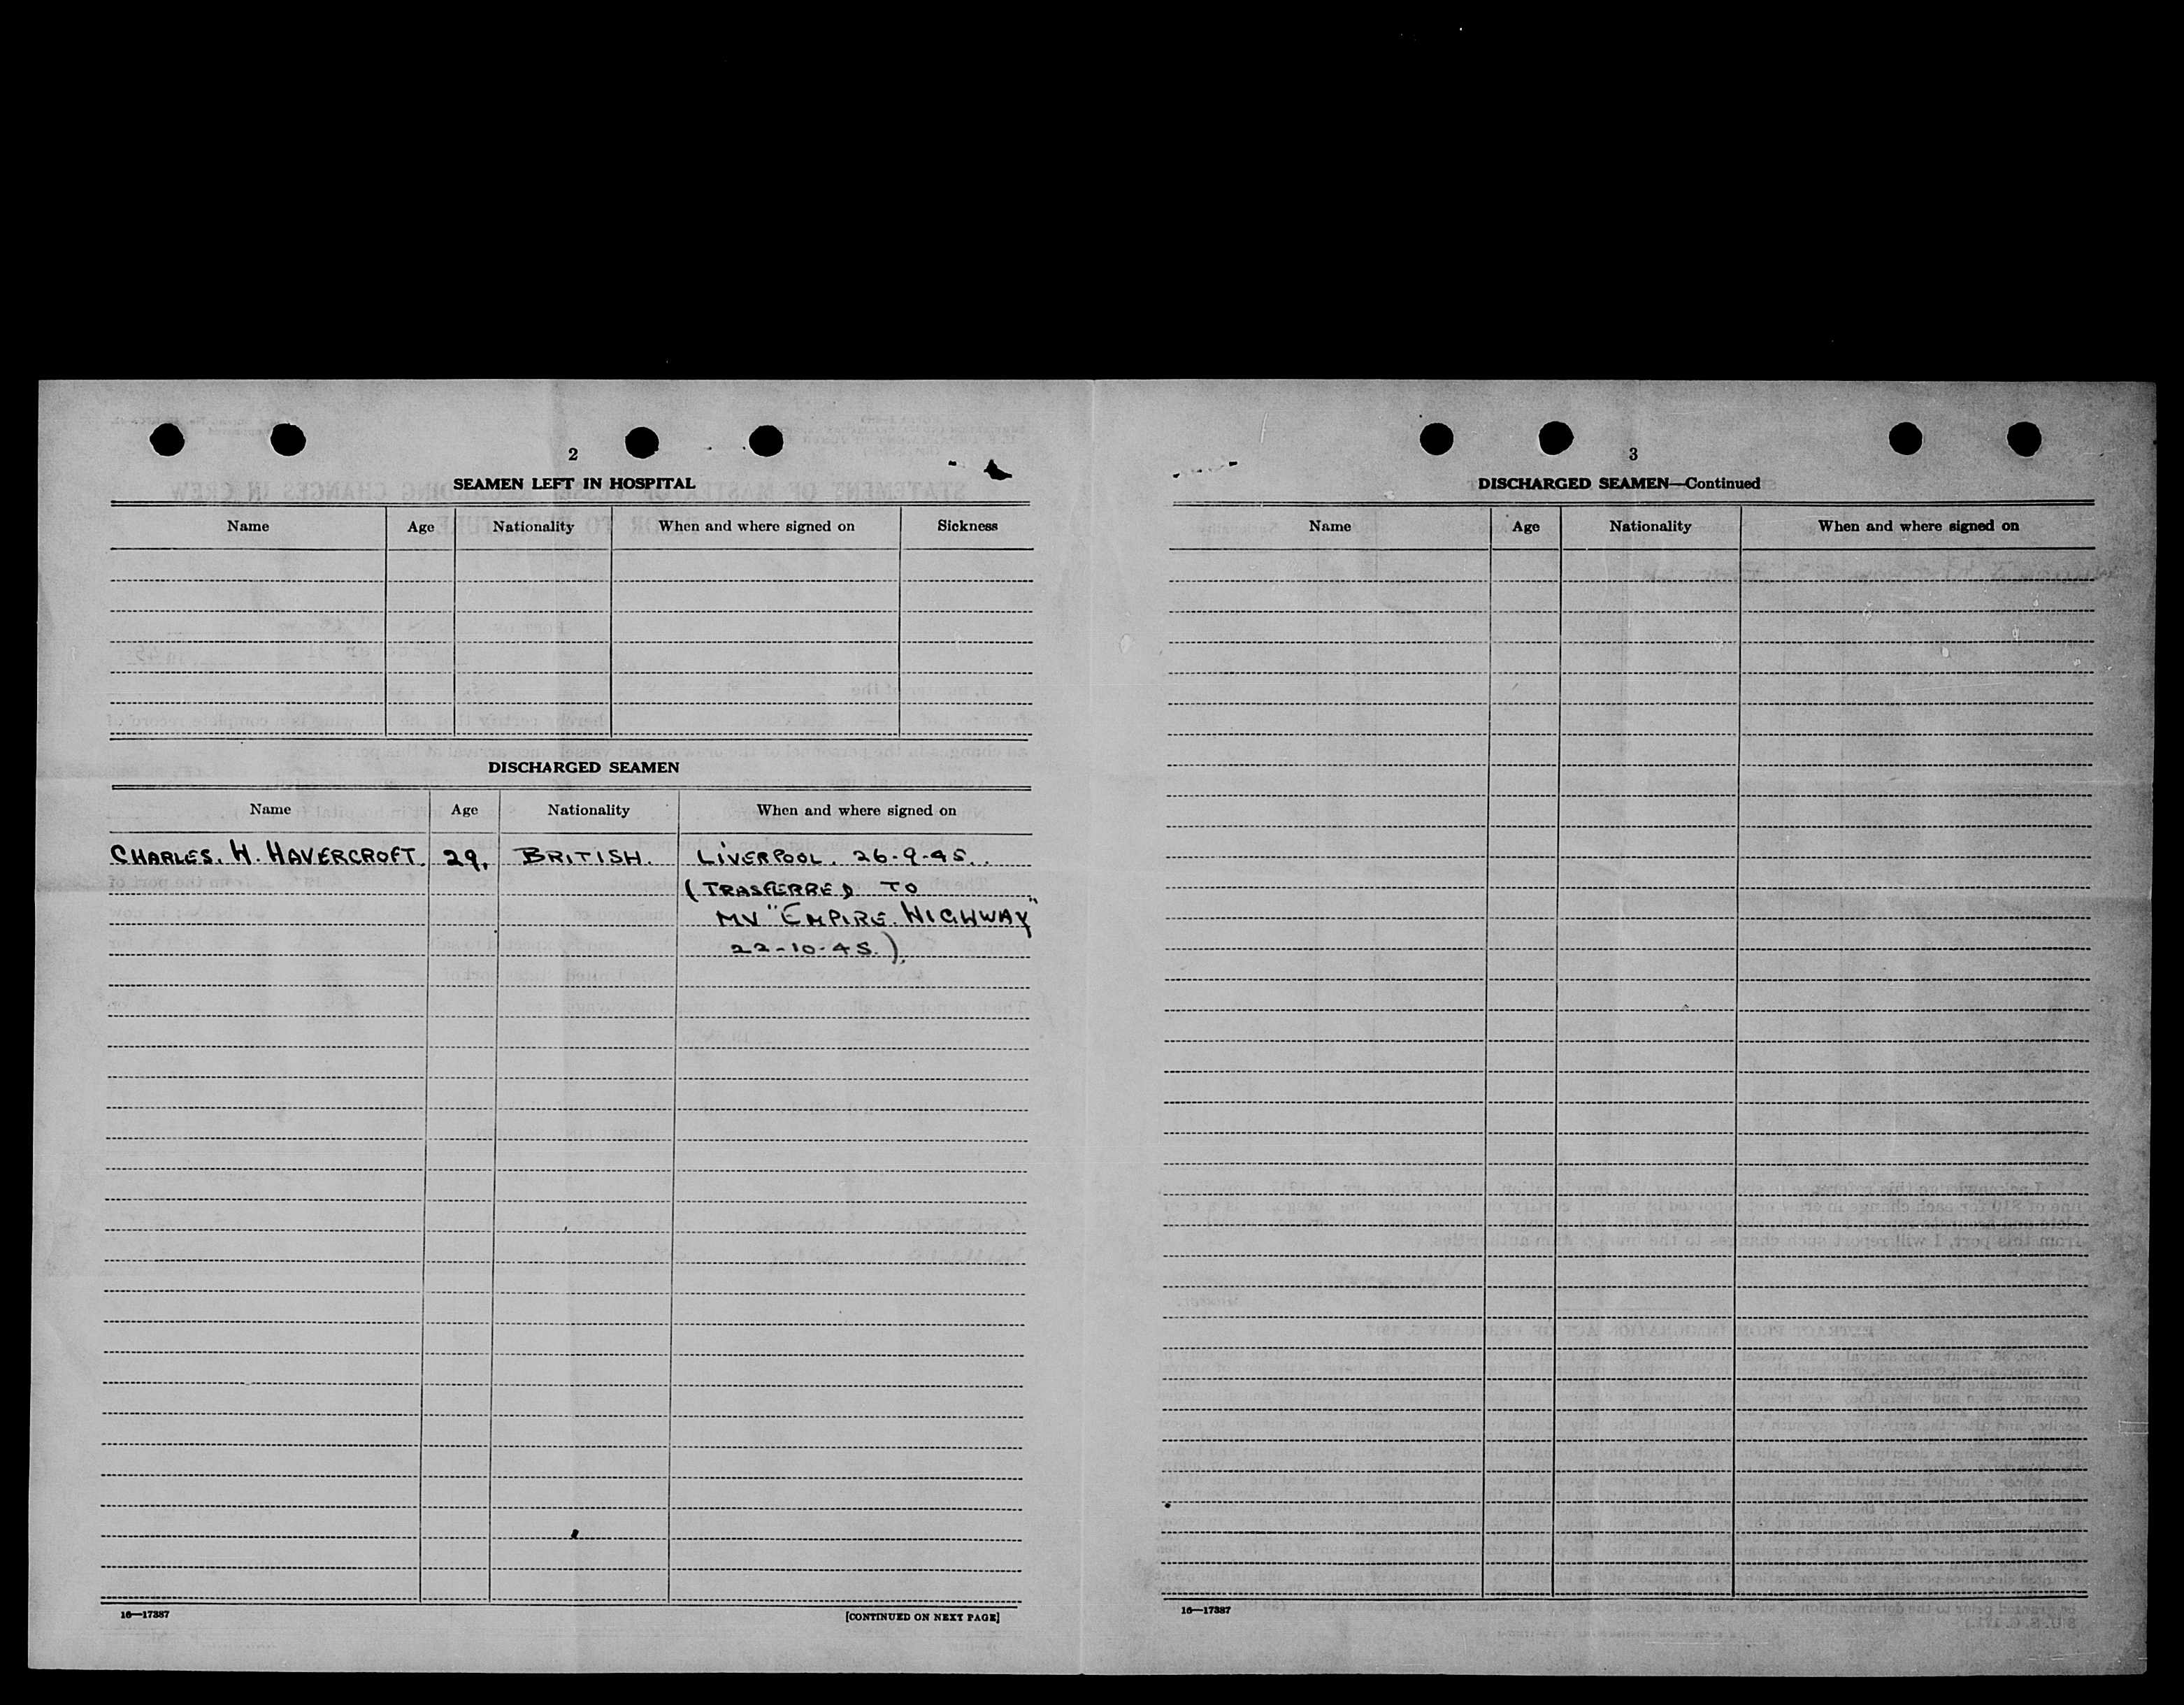 2
SEAMEN LEFT IN HOSPITAL
Name Age Nationality When and where signed on Sickness
DISCHARGED SEAMEN
Name Age Nationality When and where signed on
CHARLES. H. HAVERCROFT. 29. BRITISH. LIVERPOOL. 26-9-45.
(TRASFERRED TO
MV "EMPIRE. HIGHWAY"
22-10-45.).
16—17387 [CONTINUED ON NEXT PAGE]
3
DISCHARGED SEAMEN—Continued
Name Age Nationality When and where signed on
16—17387